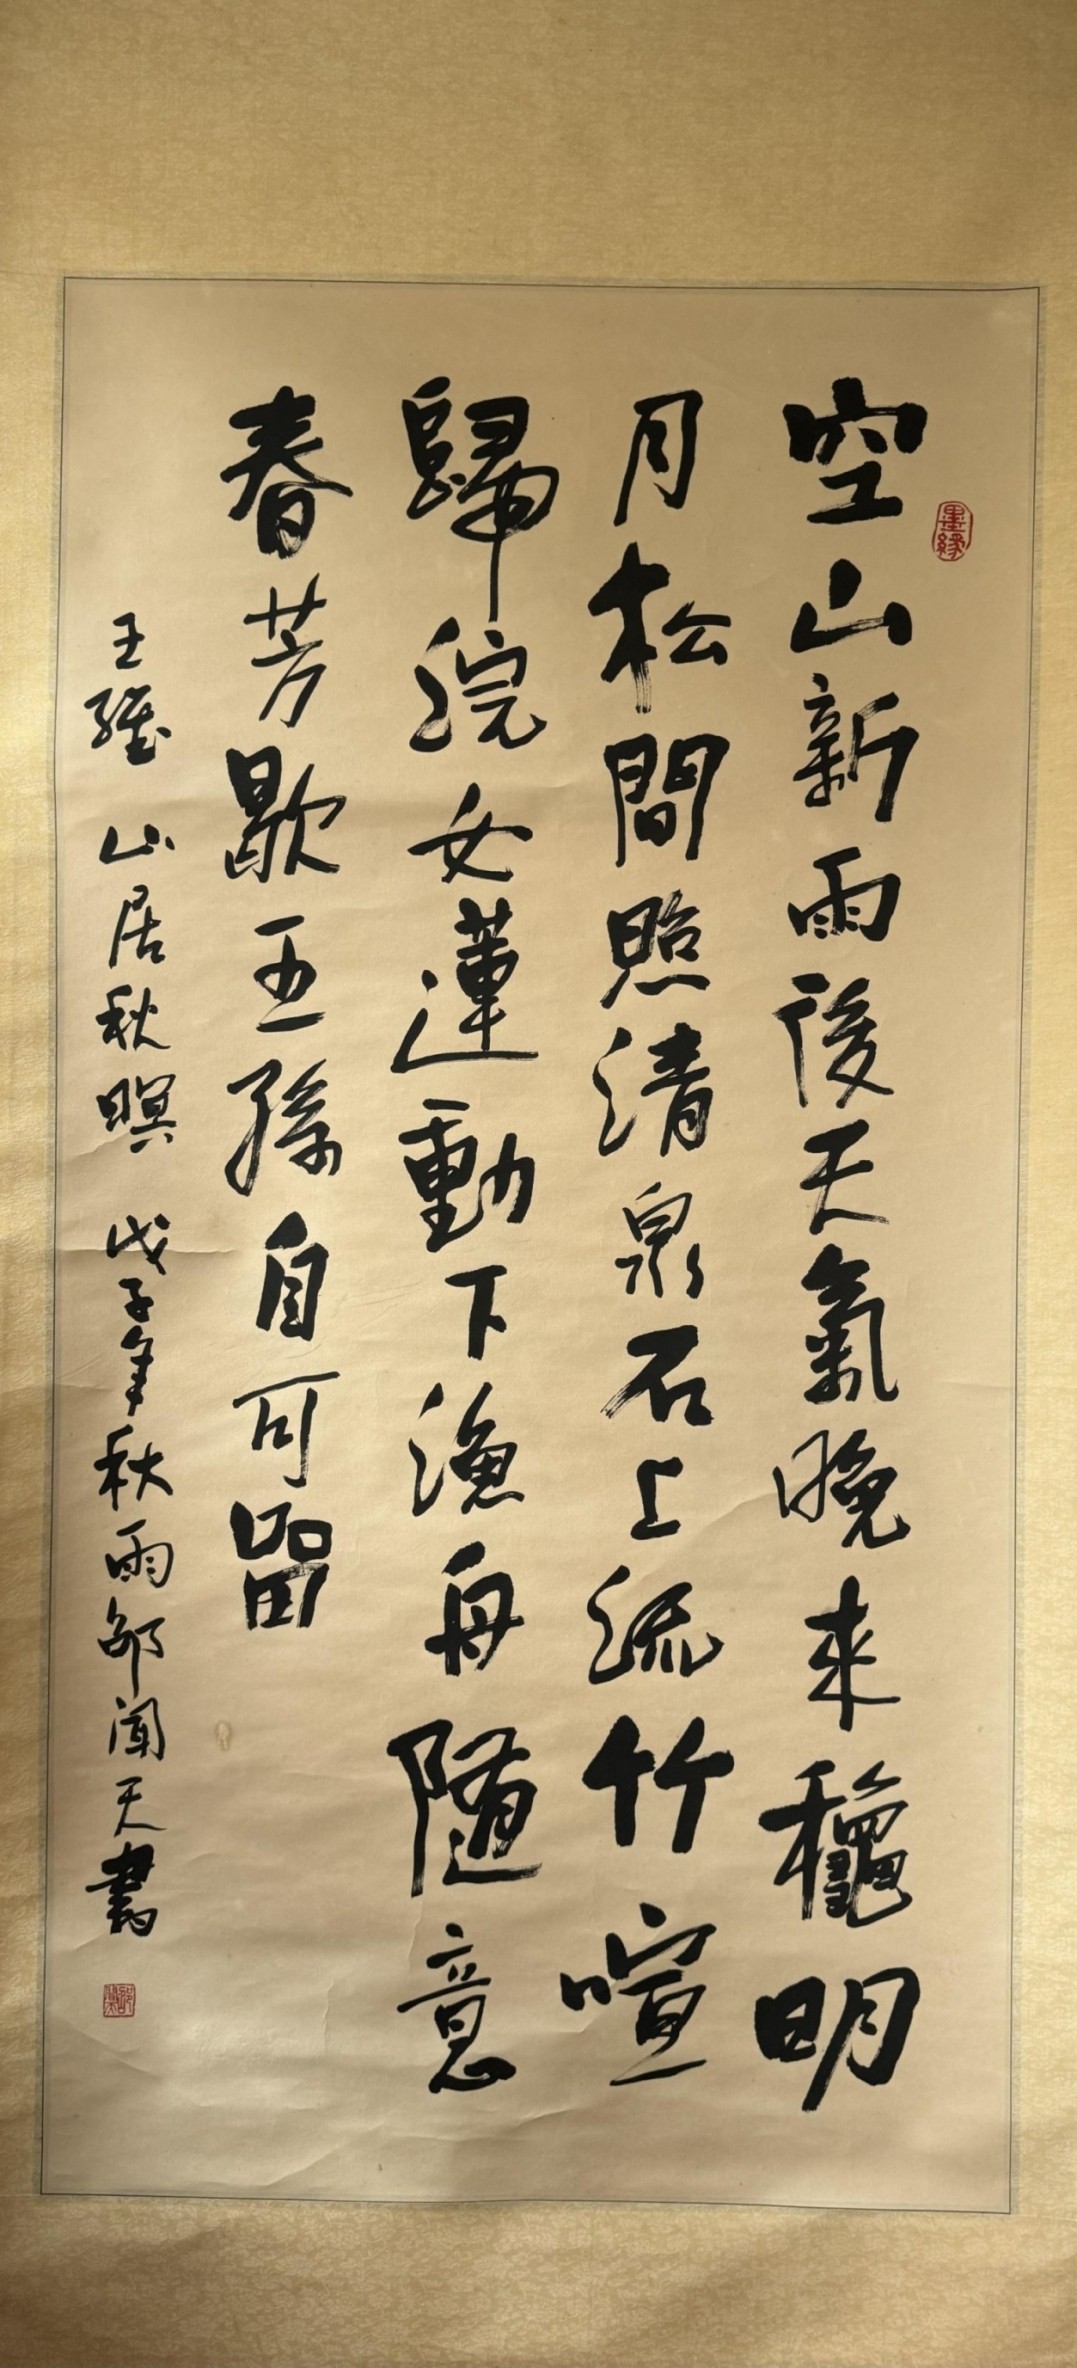 墨緣
空山新雨後天氣晚來龝明
月松間照清泉石上流竹喧
歸浣女蓮動下漁舟隨意
春芳歇王孫自可留
王維 山居秋暝 戊子年秋雨邵聞天書